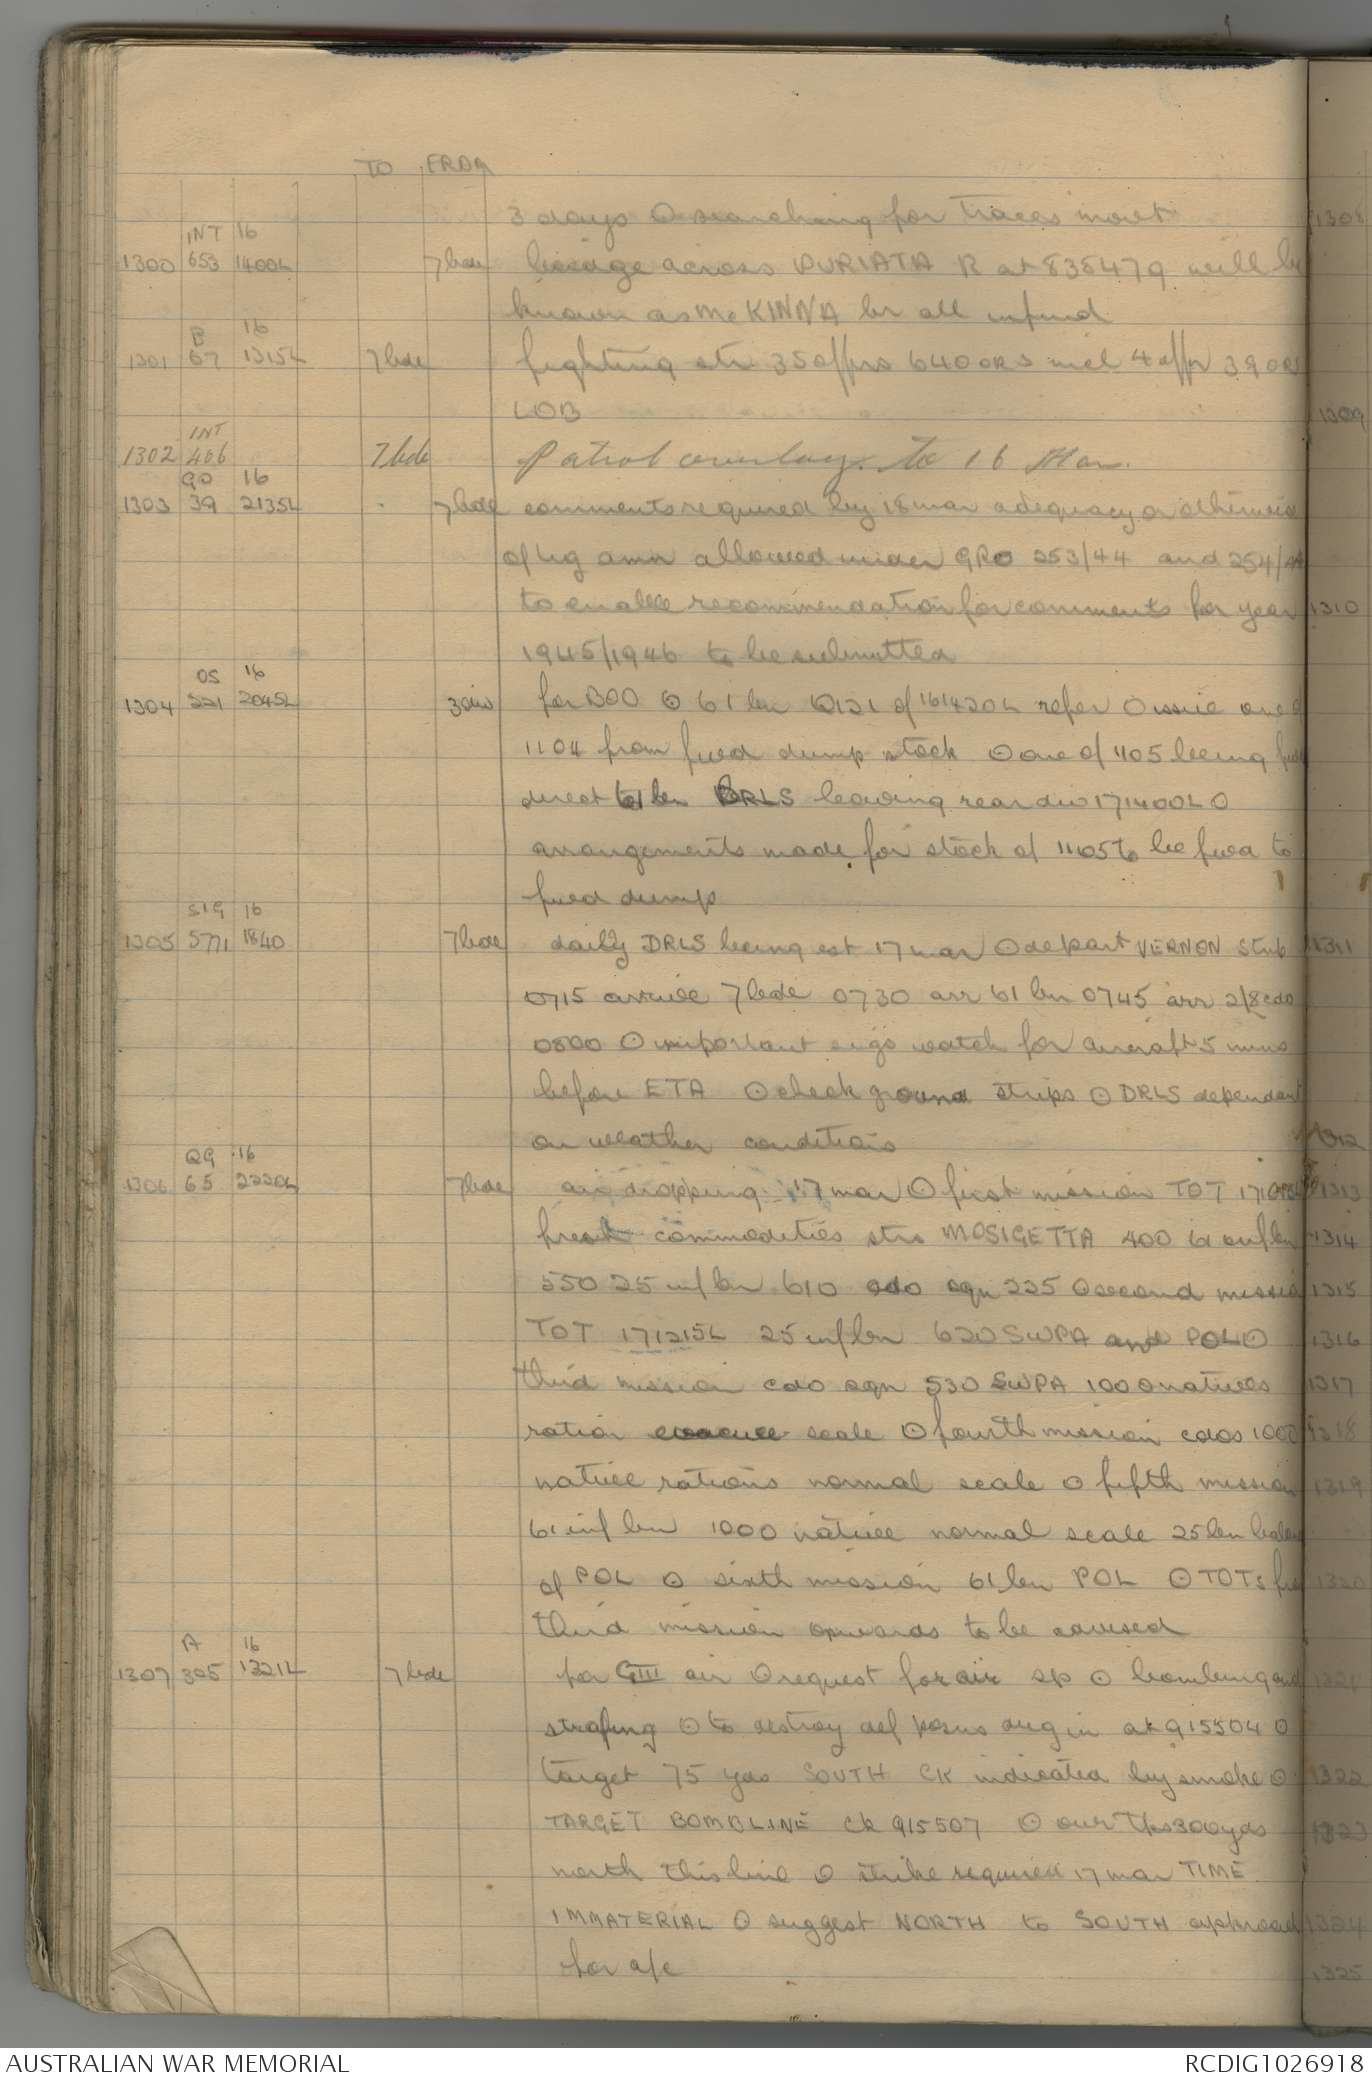 TO FROM
3 days ⊙ searching for traces
INT 16
1300 653 1400L 7 bde bridge across PURIATA R at 838479 will be
known as McKINNA br all infmd
B 16
1301 67 1315L 7 bde fighting str 35 offrs 640 ORs incl 4 offr 39 ORs
LOB
INT
1302 406 7 bde Patrol overlays to 16 Mar.
GO 16
1303 39 2135L 7 bde comments required by 18 mar adequacy or otherwise
of trg amn allowed under GRO 253/44 and 254/44
to enable recommendation for comments for year
1945/1946 to be submitted
OS 16
1304 221 2045L 3 div for BOO ⊙ 61 bn Q121 of 161420L refer ⊙ issue one of
1104 from fwd dump stock ⊙ one of 1105 being fwd
direct to 61 bn DRLS leaving rear div 171400L ⊙
arrangements made for stock of 1105 to be fwd to
fwd dump
SIG 16
1305 5771 1840 7 bde daily DRLS being est 17 mar ⊙ depart VERNON strip
0715 arrive 7 bde 0730 arr 61 bn 0745 arr 2/8 cdo
0800 ⊙ important sigs watch for aircraft 5 mins
before ETA ⊙ check ground strips ⊙ DRLS dependant
on weather conditions
QG 16
1306 65 2220L 7 bde air dropping 17 mar ⊙ first mission TOT
fresh commodities strs MOSIGETTA 400 61 inf bn
550 25 inf bn 610 cdo sqn 225 ⊙ second mission
TOT 171215L 25 inf bn 620 SWPA and POL ⊙
third mission cdo sqn 530 SWPA 1000 natives
ration scale ⊙ fourth mission cdos 1000
native rations normal scale ⊙ fifth mission
61 inf bn 1000 native normal scale 25 bn balance
of POL ⊙ sixth mission 61 bn POL ⊙ TOTs for
third mission onwards to be advised
A 16
1307 305 1221L 7 bde for GIII air ⊙ request for air sp ⊙ bombing and
strafing ⊙ to destroy def posns dug in at 915504 ⊙
target 75 yds SOUTH CK indicated by smoke ⊙
TARGET BOMBLINE CK 915507 ⊙ our tps 300 yds
north this line ⊙ strike required 17 mar TIME
IMMATERIAL ⊙ suggest NORTH to SOUTH approach
for a/c
1308
1309
1310
1311
1312
1313
1314
1315
1316
1317
1318
1319
1320
1321
1322
1323
1324
1325
AUSTRALIAN WAR MEMORIAL RCDIG1026918